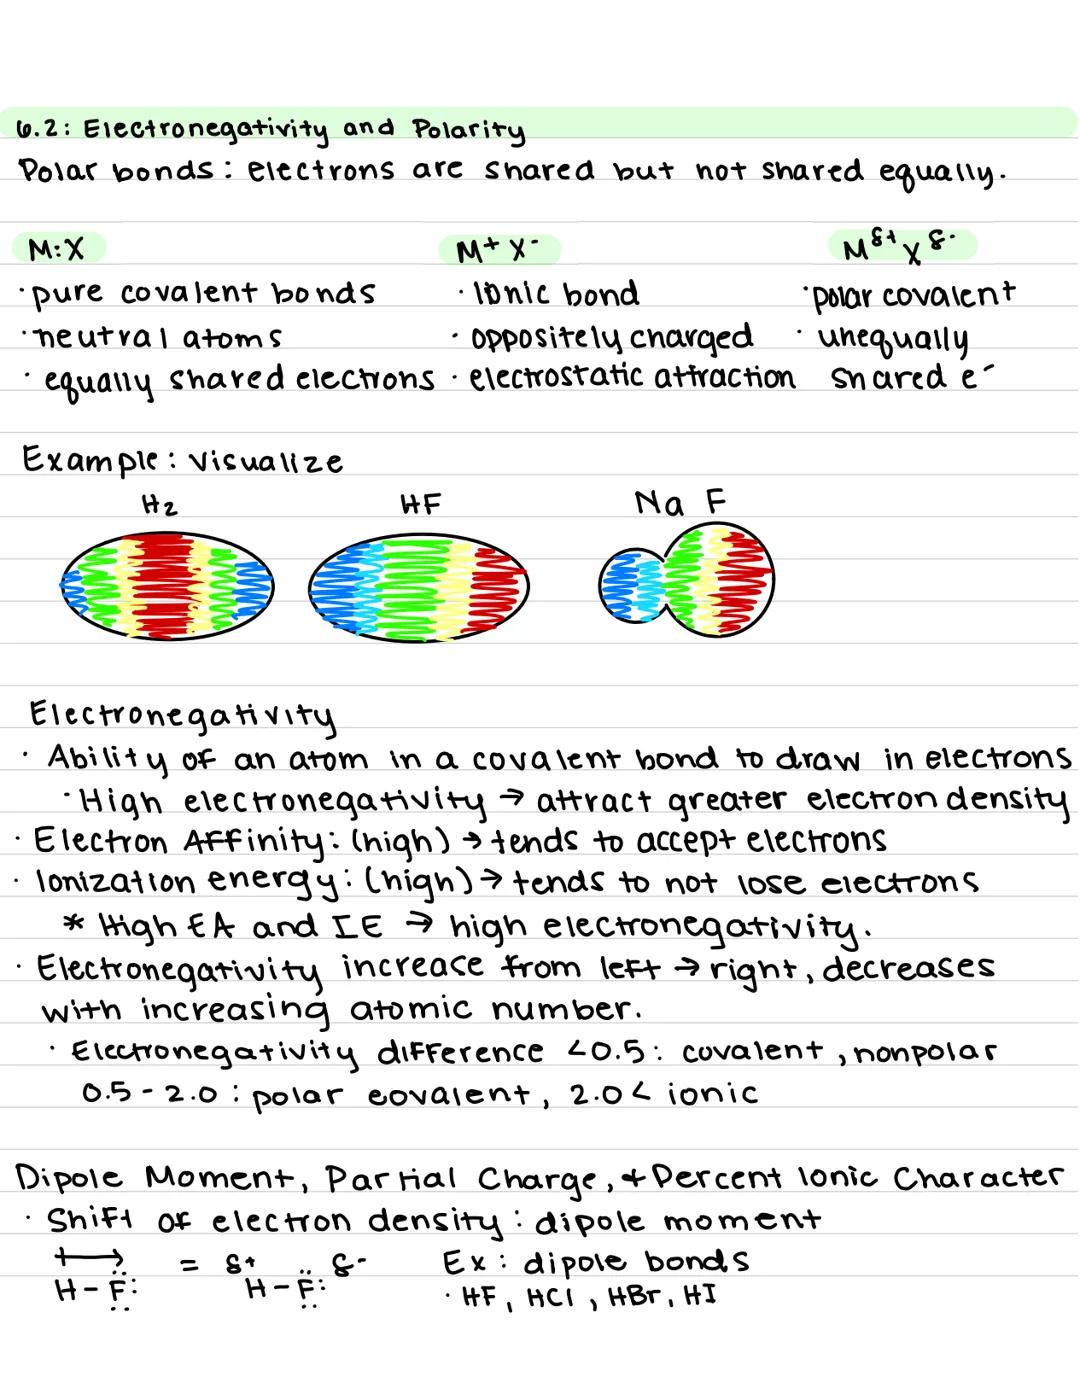 6.2: Electronegativity and Polarity
Polar bonds: electrons are shared but not shared equally.
M:X M⁺ X⁻ M^δ+ X^δ-
· pure covalent bonds · Ionic bond · polar covalent
· neutral atoms · oppositely charged · unequally
· equally shared electrons · electrostatic attraction shared e⁻
Example: Visualize
H₂ HF Na F
Electronegativity
· Ability of an atom in a covalent bond to draw in electrons
· High electronegativity → attract greater electron density
· Electron Affinity: (high) → tends to accept electrons
· Ionization energy: (high) → tends to not lose electrons
* High EA and IE → high electronegativity.
· Electronegativity increase from left → right, decreases
with increasing atomic number.
· Electronegativity difference <0.5: covalent, nonpolar
0.5 - 2.0: polar covalent, 2.0< ionic
Dipole Moment, Partial Charge, + Percent Ionic Character
· Shift of electron density: dipole moment
= δ+ δ- Ex: dipole bonds
H-F: H-F: · HF, HCl, HBr, HI